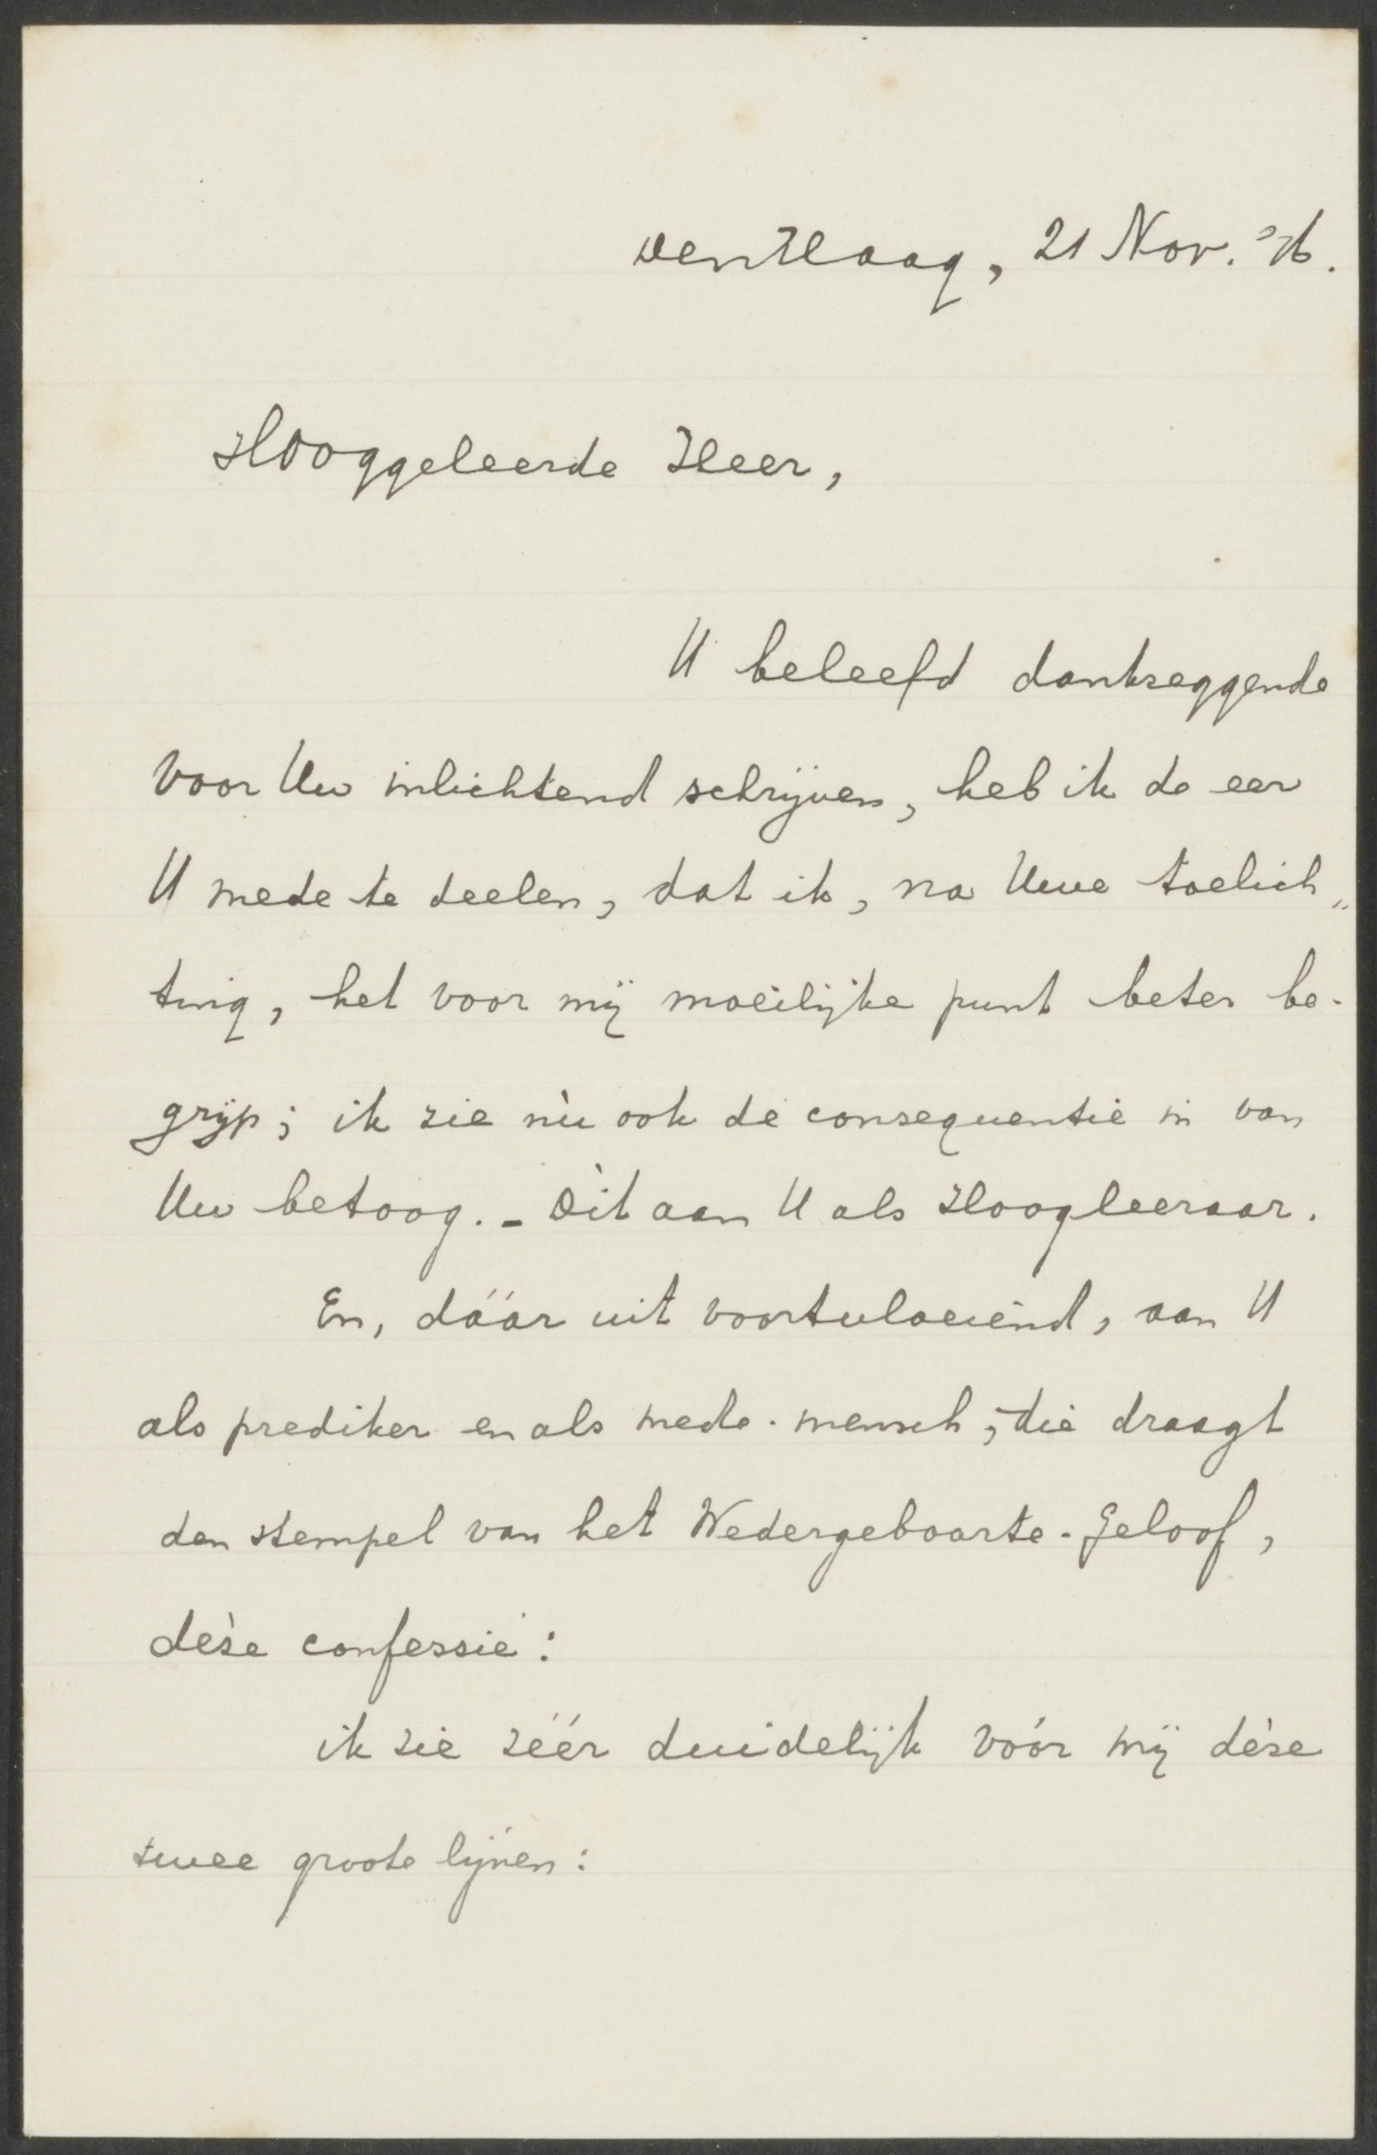 Den Haag, 21 Nov. '16.
Hooggeleerde Heer,
U beleefd dankzeggende
voor Uw inlichtend schrijven, heb ik de eer
U mede te deelen, dat ik, na Uwe toelich„
ting, het voor mij moeilijke punt beter be-
grijp; ik zie nù ook de consequentie in van
Uw betoog. - Dìt aan U als Hoogleeraar.
En, dáár uit voortvloeiend, aan U
als prediker en als mede-mensch, die draagt
den stempel van het Wedergeboorte-Geloof,
dèze confessie:
ik zie zéér duidelijk vóór mij dèze
twee groote lijnen: